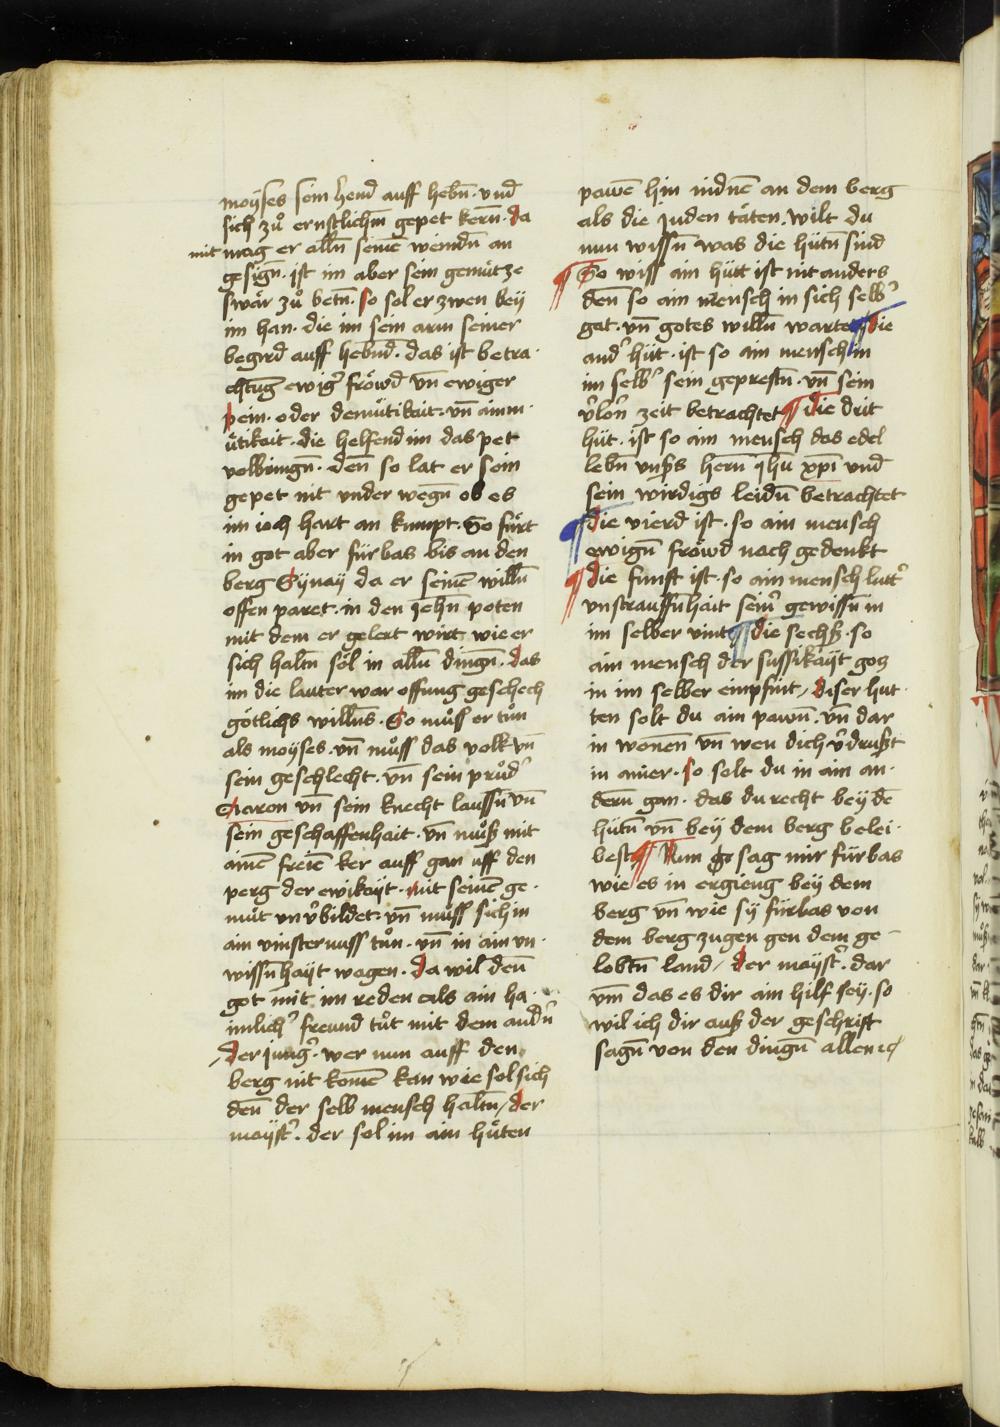 moyses sein hend auff hebn̄ · und
sich zů ernstlichm̄ gepet kern̄ · da
mit mag er alln̄ seinē veindn̄ an
gesign̄ · ist im aber sein gemütze
swär zů betn̄ · so sol er zwen bey
im han · die im sein arm seiner
begird auff hebnd · das ist betra ·
chtūg ewig̛ fröwd vn̄ ewiger
pein · oder demütikait · vn̄ ainm ·
ütikait · die helfend im das pet
volbringn̄ · den̄ so lat er sein
gepet nit under wegn̄ ob es
im ioch hart an kumpt · So fürt
in got aber fürbas bis an den
berg Synay da er seinē willn̄
offen paret · in den zehn̄ poten
mit dem er gelert wirt wie er
sich haltn̄ söl in alln̄ dingn̄ · das
im die lauter war offung geschech
götlichs willn̄s · So můss er tůn
als moyses · vn̄ můss das volk vn̄
sein geschlecht · vn̄ sein průd̛
Aaron vn̄ sein knecht laussn̄ vn̄
sein geschaffenhait · vn̄ můß mit
ainē freiē ker auff gan uff den
perg der ewikayt · mit seinē ge ·
müt vn v̄bildet · vn̄ můss sich in
ain vinsternuss tůn · vn̄ in ain vn ·
wissn̄hayt wagen · da wil den̄
got mit im reden als ain ha ·
imlich̛ freund tůt mit dem andn̛
der jung̛ · wer nun auff den
berg nit komē kan wie sol sich
den̄ der selb mensch haltn̄ / der
mayst̛ · der sol im ain hüten
pawē hin nidnē an dem berg
als die juden täten · wilt du
nun wissn̄ was die hütn̄ sind
¶ So wiss ain hütt ist nit anders
den̄ so ain mensch in sich selb̛
gat · vn̄ gotes willn̄ wartet ¶ die
and̛ hüt · ist so ain mensch in
im selb̛ sein geprestn̄ · vn̄ sein
v̄lorn̄ zeit betrachtet ¶ die drit
hüt · ist so ain mensch das edel
lebn̄ vnßs hern̄ ihū xp̄i und
sein wirdigs leidn̄ betrachtet
¶ die vierd ist · so ain mensch
ewign̄ fröwd nach gedenkt
¶ die funft ist · so ain mensch lutt̛
vnstrauffn̄hait sein̛ gewissn̄ in
im selber vint ¶ die sechß · so
ain mensch der sussikayt gotz
in im selber empfint / diser hut ·
ten solt du ain pawn̄ · vn̄ dar
in wonen̄ vn̄ wen dich v̄drußt
in ainer · so solt du in ain an ·
dern̄ gan · das du recht bey dē
hütn̄ vn̄ bey dem berg belei ·
best ¶ Nun so sag mir fürbas
wie es in ergieng bey dem
berg vn̄ wie sy fürbas von
dem berg zugen gen dem ge -
lobtn̄ land / der mayst̛ · dar
vm̄ das es dir ain hilf sey · so
wil ich dir auß der geschrift
sagn̄ von den dingn̄ allen